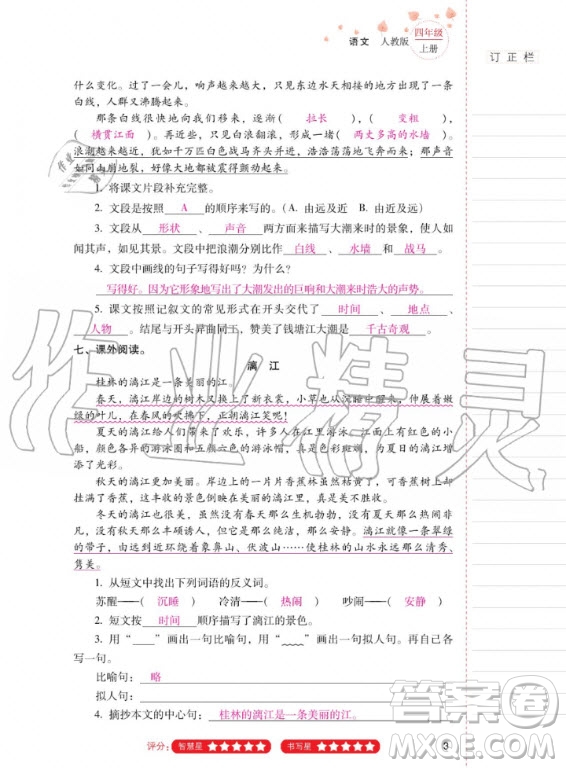 语文 人教版 四年级 上册
订正栏
什么变化。过了一会儿，响声越来越大，只见东边水天相接的地方出现了一条
白线，人群又沸腾起来。
那条白线很快地向我们移来，逐渐（ 拉长 ），（ 变粗 ），
（ 横贯江面 ）。再近些，只见白浪翻滚，形成一堵（ 两丈多高的水墙 ）。
浪潮越来越近，犹如千万匹白色战马齐头并进，浩浩荡荡地飞奔而来；那声音
如同山崩地裂，好像大地都被震得颤动起来。
1. 将课文片段补充完整。
2. 文段是按照 A 的顺序来写的。（A. 由远及近 B. 由近及远）
3. 文段从 形状 、 声音 两方面来描写大潮来时的景象，使人如
闻其声，如见其形。文段中把浪潮分别比作 白线 、 水墙 和 战马 。
4. 文段中画线的句子写得好吗？为什么？
写得好。因为它形象地写出了大潮发出的巨响和大潮来时浩大的声势。
5. 课文按照记叙文的常见形式在开头交代了 时间 、 地点 、
人物 。结尾与开头异曲同工，赞美了钱塘江大潮是 千古奇观 。
七、课外阅读。
漓江
桂林的漓江是一条美丽的江。
春天，漓江岸边的树木又换上了新衣裳，小草也从沉睡中醒来，伸展着嫩
绿的叶儿，在春风的吹拂下，正朝漓江笑呢！
夏天的漓江给人们带来了欢乐，许多人在江里游泳，江上无数红色的小
船，颜色各异的游泳圈和五颜六色的游泳帽，真是色彩斑斓，为夏天的漓江增
添了光彩。
秋天的漓江更加美丽。岸边上的一片片香蕉林虽然杨黄了，可果实却挂
满了枝头。这种丰收的景色倒映在江面上，为秋天的漓江增添了一番景色。
冬天的漓江虽然没有春天那么生机勃勃，没有夏天那么热闹非
凡，没有秋天那么丰硕诱人，但是仍然风景如画。漓江就像一条翠绿
的带子，由远到近环绕着象鼻山、伏波山……使桂林的山水永远那么清秀、
隽美。
1. 从短文中找出下列词语的反义词。
苏醒——（ 沉睡 ） 冷清——（ 热闹 ） 吵闹——（ 安静 ）
2. 短文按 时间 顺序描写了漓江的景色。
3. 用“____”画出一句比喻句，用“﹏﹏”画出一句拟人句。再各
写一句。
比喻句： 略
拟人句：
4. 摘抄本文的中心句： 桂林的漓江是一条美丽的江。
评分： 智慧星 ★★★★★ 书写星 ★★★★★
3
作业精灵
答案圈
MXQE.COM